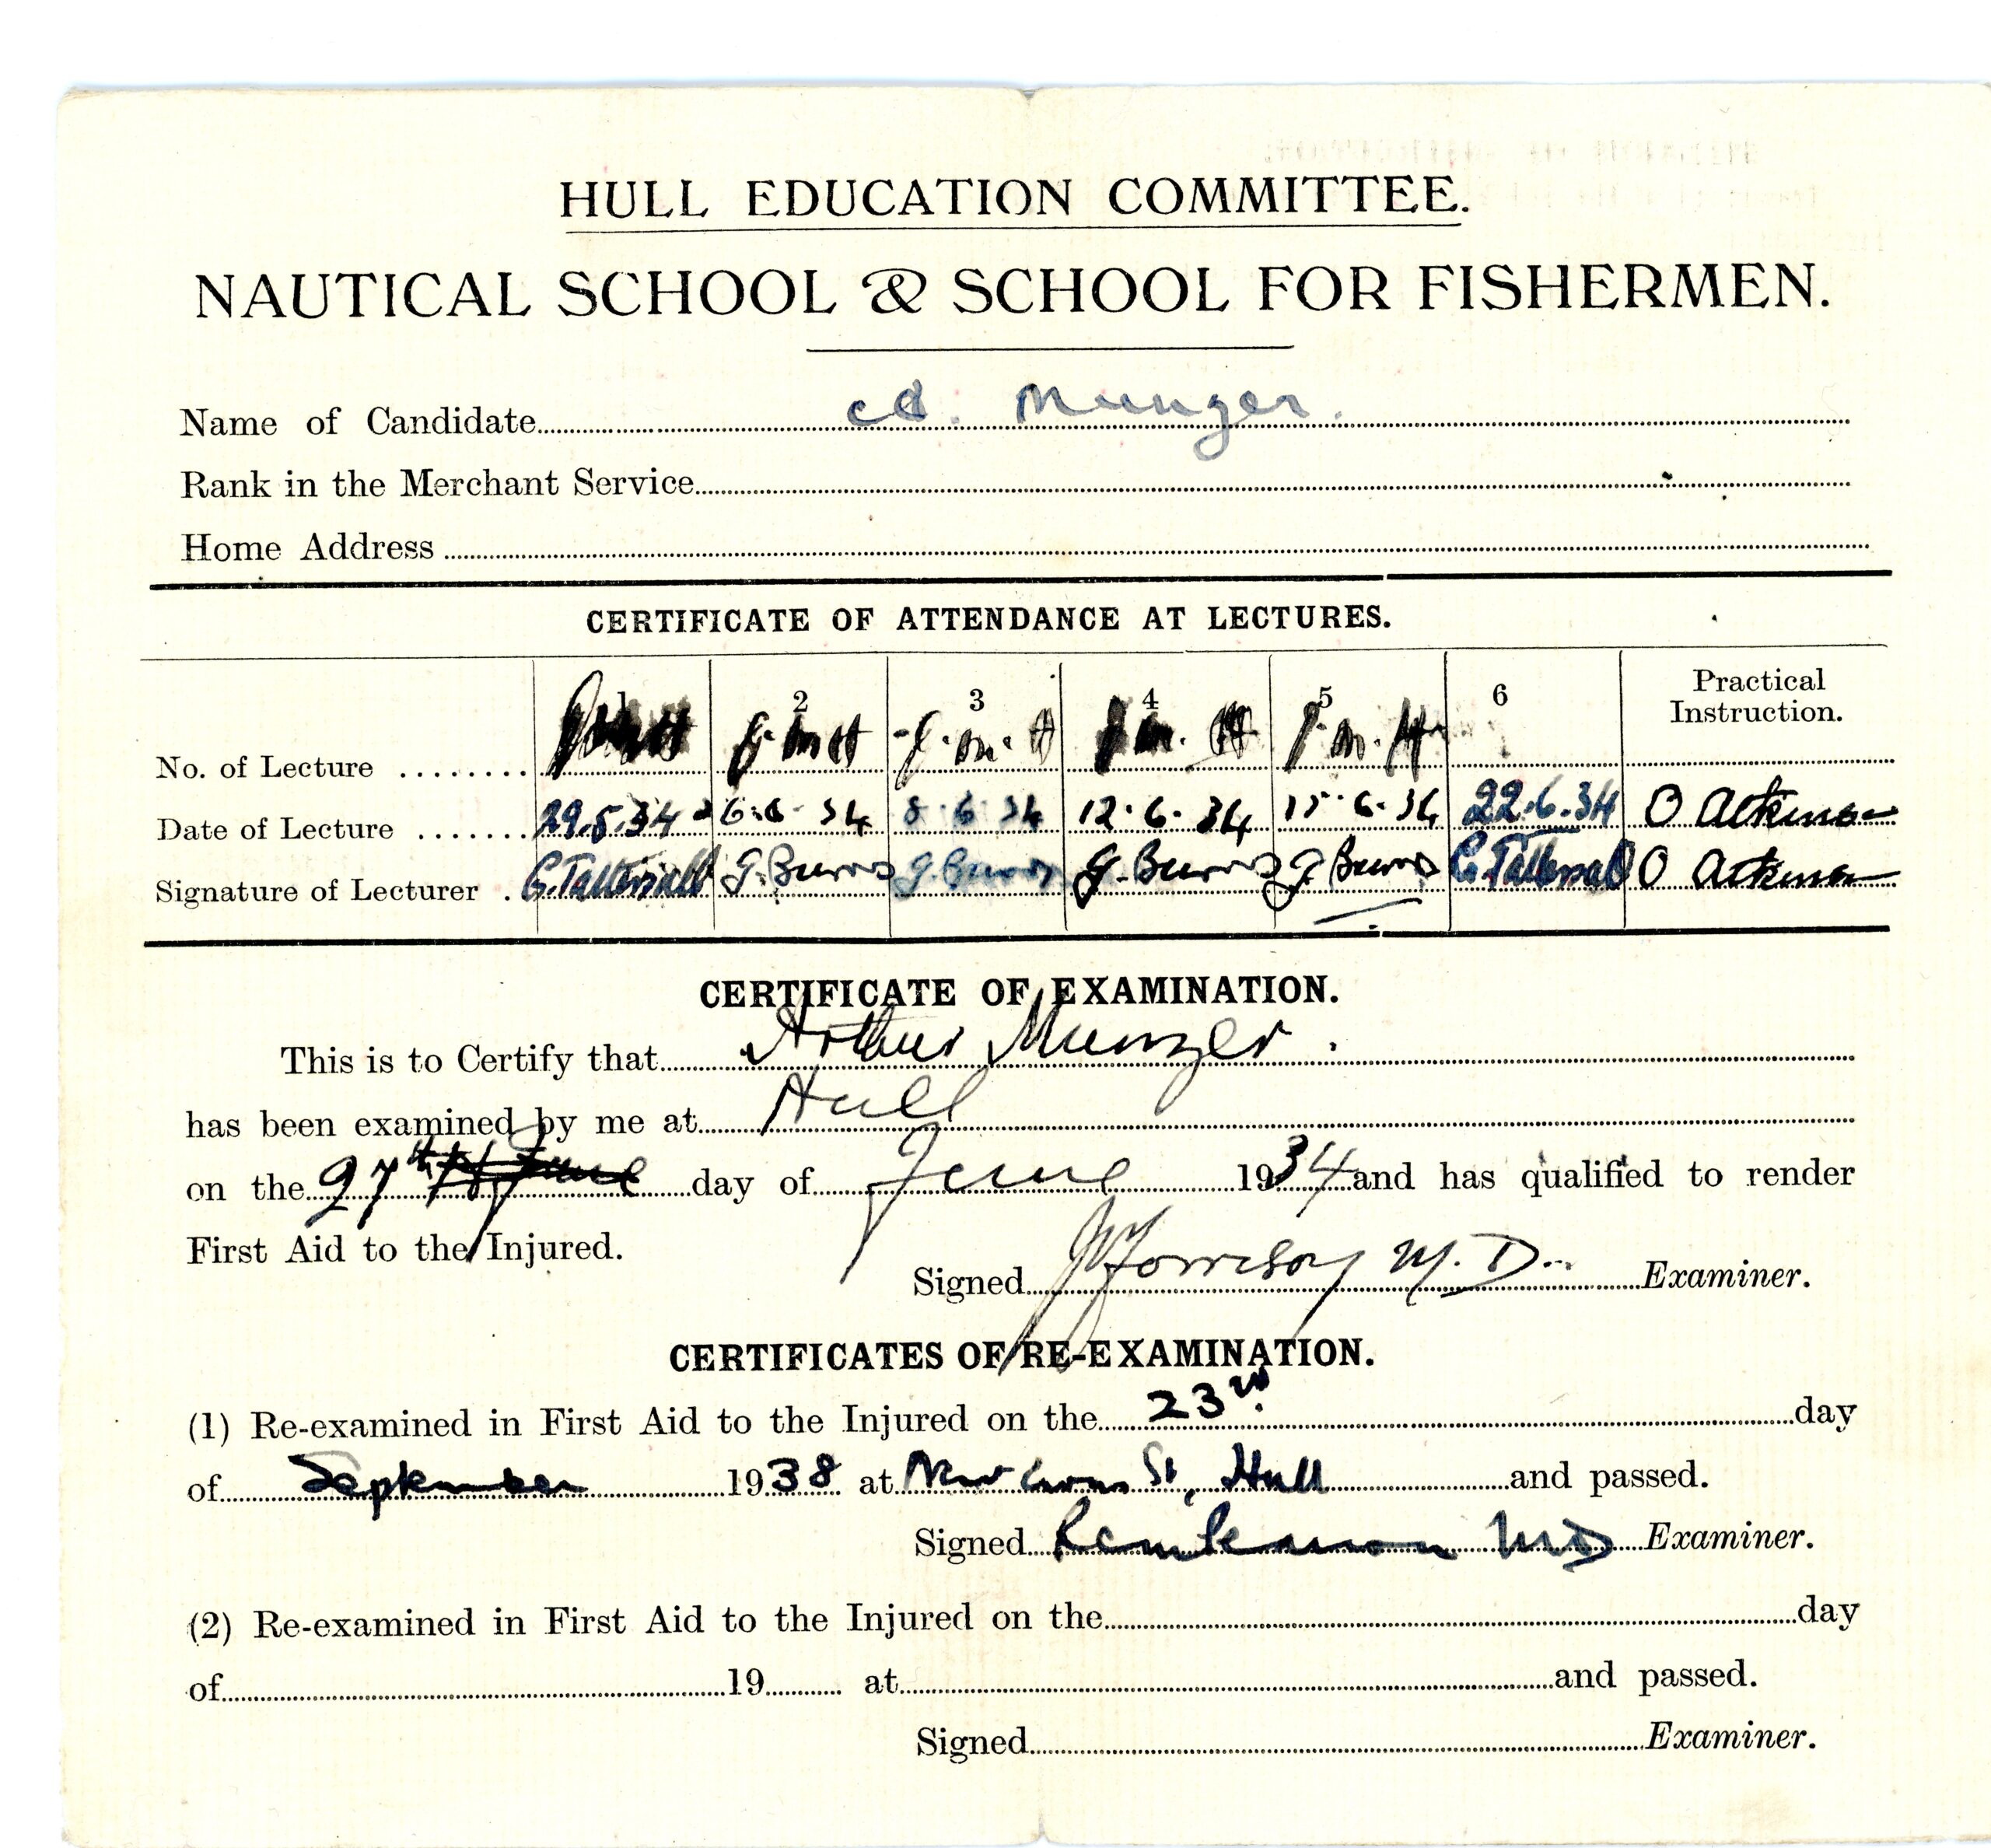 HULL EDUCATION COMMITTEE.
NAUTICAL SCHOOL & SCHOOL FOR FISHERMEN.
Name of Candidate Munger.
Rank in the Merchant Service
Home Address
CERTIFICATE OF ATTENDANCE AT LECTURES.
No. of Lecture 1 2 3 4 5 6 Practical Instruction.
J. M. H J. M. H J. M. H J. M. H
Date of Lecture 29.5.34 6.6.34 8.6.34 12.6.34 15.6.34 22.6.34 O Atkinson
Signature of Lecturer G. Tattersall G. Burns G. Burns G. Burns G. Burns G. Tattersall O Atkinson
CERTIFICATE OF EXAMINATION.
This is to Certify that Arthur Munger.
has been examined by me at Hull
on the 27th day of June 1934 and has qualified to render
First Aid to the Injured.
Signed Morrison M.D. Examiner.
CERTIFICATES OF RE-EXAMINATION.
(1) Re-examined in First Aid to the Injured on the 23rd day
of September 1938 at New Cross St, Hull and passed.
Signed MD Examiner.
(2) Re-examined in First Aid to the Injured on the day
of 19 at and passed.
Signed Examiner.